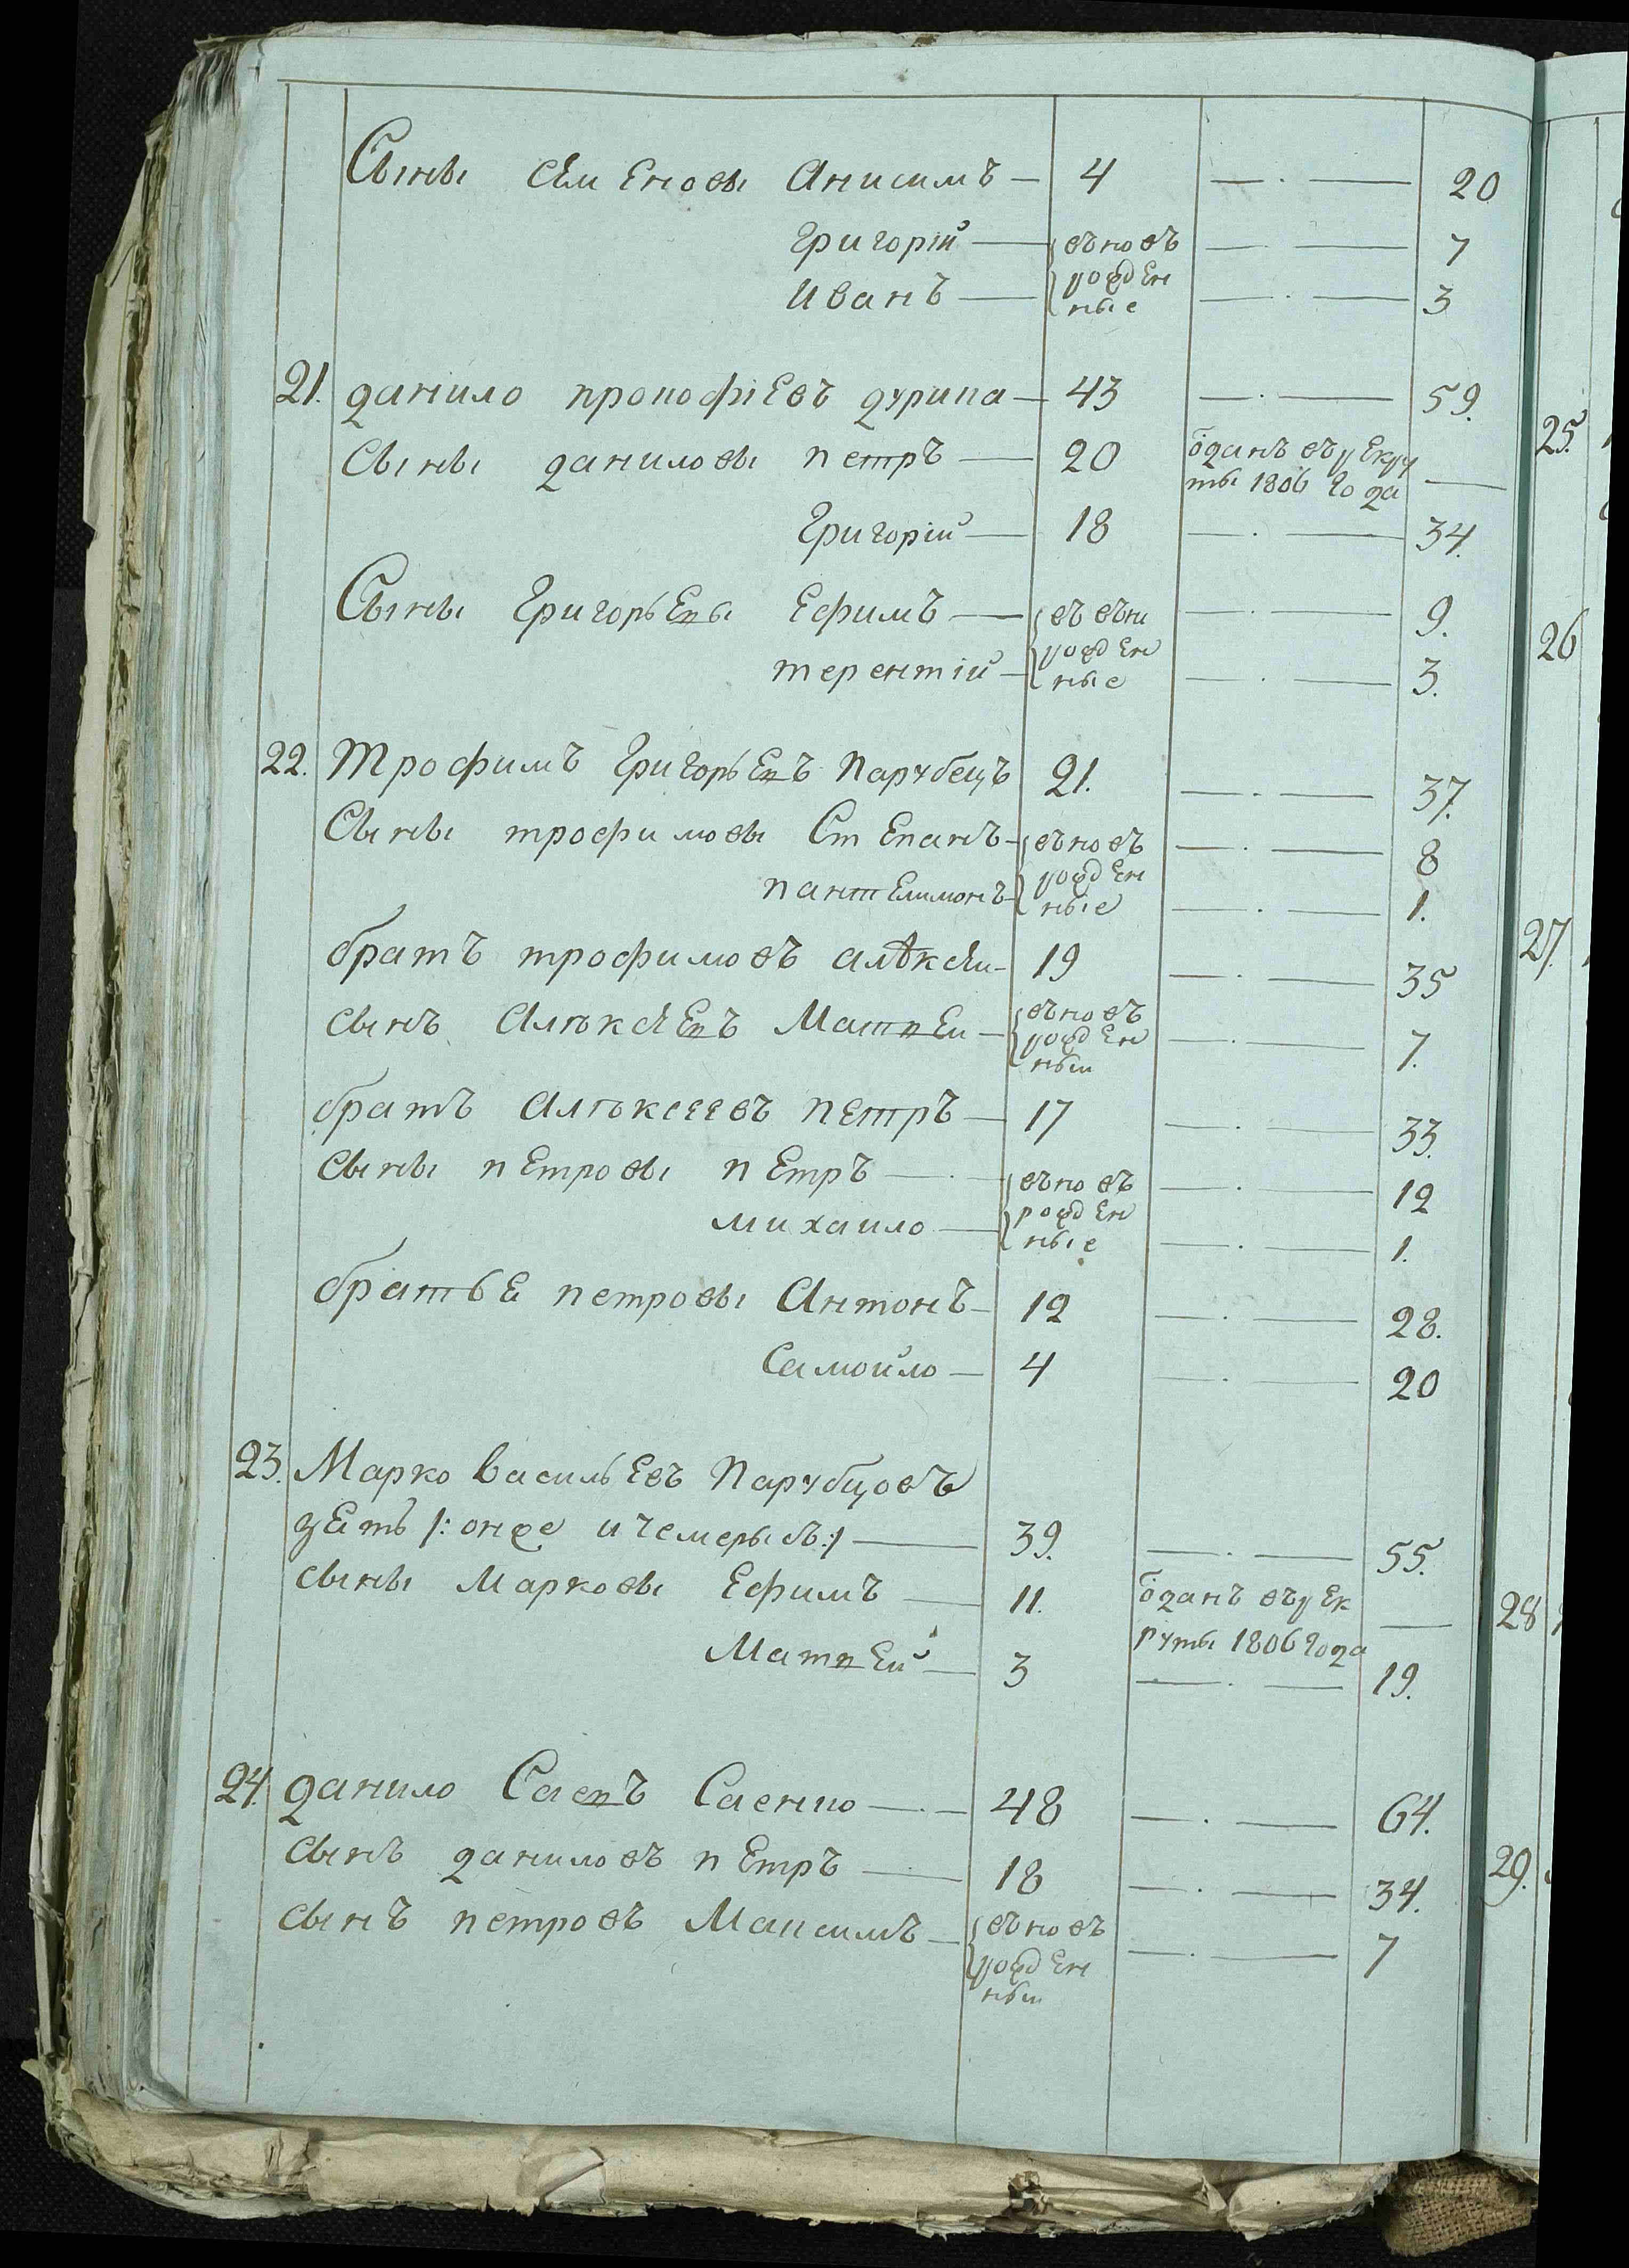 Сыны семеновы Анисимъ — 4 —.— 20
Григорій — вновъ —.— 7
рожден
Иванъ — ные —.— 3
21. данило прокофіевъ дурипа — 43 —.— 59.
Сыны даниловы петръ — 20 ѿданъ въ рекру
ты 1806 года —
Григорій — 18 —.— 34.
Сыны Григорьевы Ефимъ — въ внов —.— 9.
рожден
терентій — ные —.— 3.
22. Трофимъ Григорьевъ Парубецъ 21. —.— 37.
Сыны трофимовы Степанъ — вновъ —.— 8
рожден
пантелимонъ — ные —.— 1.
братъ трофимовъ алѣксѣи — 19 —.— 35
сынъ Алѣксѣевъ Матвеи — вновъ
рожден —.— 7.
ныи
братъ Алѣксеевъ петръ — 17 —.— 33.
сыны петровы петръ —.— вновъ —.— 12
рожден
михаило — ные —.— 1.
братье петровы Антонъ — 12 —.— 28.
Самойло — 4 —.— 20
23. Марко васильевъ Парубцовъ
зеть /: онже и чемерысъ :/ — 39. —.— 55.
сыны Марковы Ефимъ — 11. ѿданъ въ рек —
руты 1806 года
Матвей — 3 —.— 19.
24. данило Саевъ Саенко —.— 48 —.— 64.
сынъ даниловъ петръ — 18 —.— 34.
сынъ петровъ Максимъ — вновъ —.— 7
рожден
ныи
25.
26
27.
28
29.